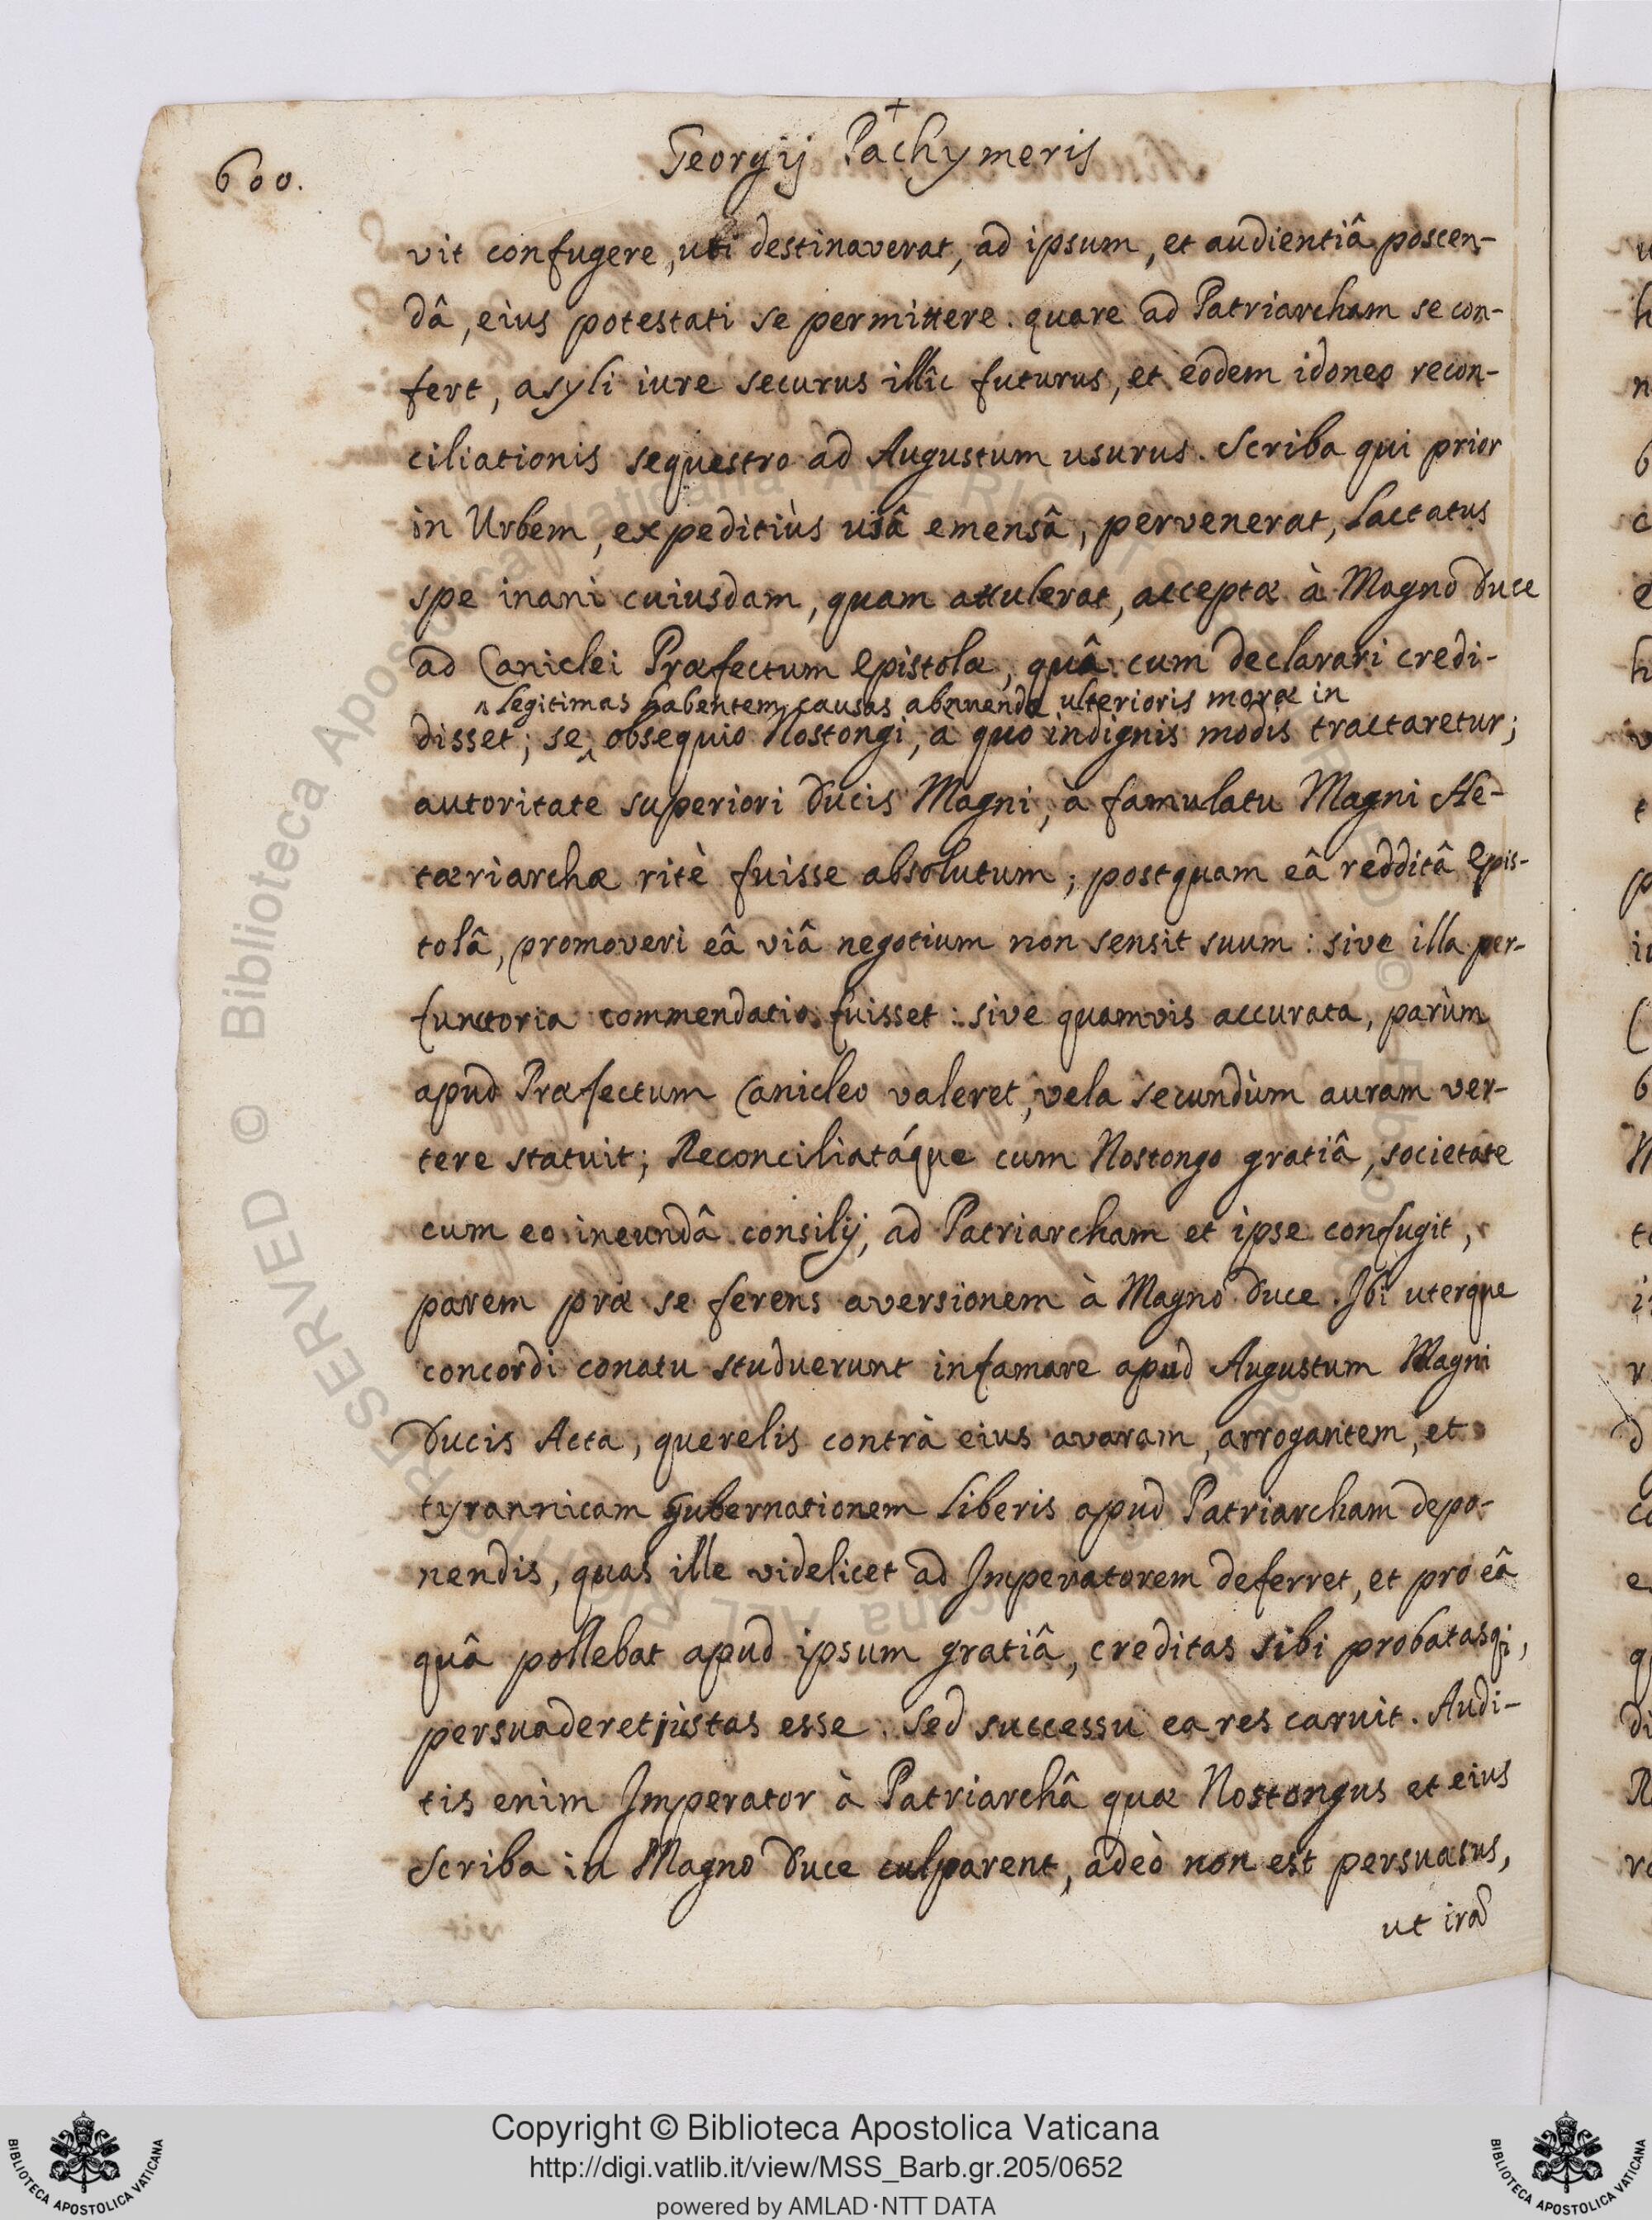 600.
Georgij Pachymeris
vit confugere, uti destinaverat, ad ipsum, et audientiâ poscen-
dâ, eius potestati se permittere. quare ad Patriarcham se con-
fert, asyli iure securus illîc futurus, et eodem idoneo recon-
ciliationis sequestro ad Augustum usurus. Scriba qui prior
in Urbem, expeditiùs viâ emensâ, pervenerat, lactatus
spe inani cuiusdam, quam attulerat, acceptæ à Magno Duce
ad Caniclei Præfectum epistolæ, quâ cum declarari credi-
^ legitimas habentem causas abnuendæ ulterioris moræ in
disset; se ^ obsequio Nostongi, a quo indignis modis tractaretur;
autoritate superiori Ducis Magni, à famulatu Magni He-
tæriarchæ ritè fuisse absolutum; postquam eâ redditâ epis-
tolâ, promoveri eâ viâ negotium non sensit suum: sive illa per-
functoria commendatio fuisset: sive quamvis accurata, parùm
apud Præfectum Canicleo valeret, vela secundùm auram ver-
tere statuit; Reconciliatáque cum Nostongo gratiâ, societate
cum eo ineundâ consilij, ad Patriarcham et ipse confugit,
parem præ se ferens aversionem à Magno Duce. Ibi uterque
concordi conatu studuerunt infamare apud Augustum Magni
Ducis Acta, querelis contrà eius avaram, arrogantem, et
tyrannicam gubernationem liberis apud Patriarcham depo-
nendis, quas ille videlicet ad Imperatorem deferret, et pro eâ
quâ pollebat apud ipsum gratiâ, creditas sibi probatasq;,
persuaderet iustas esse. Sed successu ea res caruit. Audi-
tis enim Imperator à Patriarchâ quæ Nostongus et eius
Scriba in Magno Duce culparent, adeò non est persuasus,
ut irâ
Copyright © Biblioteca Apostolica Vaticana
http://digi.vatlib.it/view/MSS_Barb.gr.205/0652
powered by AMLAD·NTT DATA
BIBLIOTECA APOSTOLICA VATICANA
BIBLIOTECA APOSTOLICA VATICANA